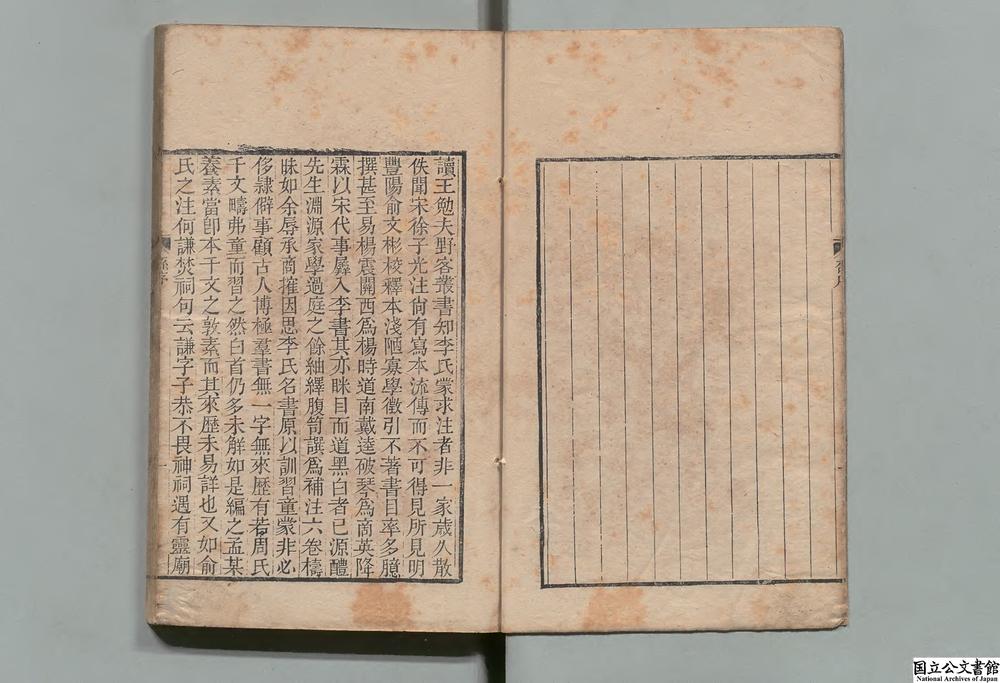 讀王勉夫野客叢書知李氏蒙求注者非一家歲久散
佚聞宋徐子光注尙有寫本流傳而不可得見所見明
豐陽俞文彬校釋本淺陋寡學徵引不著書目率多臆
撰甚至易楊震關西爲楊時道南戴逵破琴爲商英降
霖以宋代事羼入李書其亦眯目而道黑白者已源醴
先生淵源家學過庭之餘紬繹腹笥譔爲補注六卷檮
昧如余辱承商搉因思李氏名書原以訓習童蒙非必
侈隸僻事顧古人博極羣書無一字無來歷有若周氏
千文疇弗童而習之然白首仍多未解如是編之孟某
養素當卽本千文之敦素而其來歷未易詳也又如俞
氏之注何謙焚祠句云謙字子恭不畏神祠遇有靈廟
一
国立公文書館
National Archives of Japan